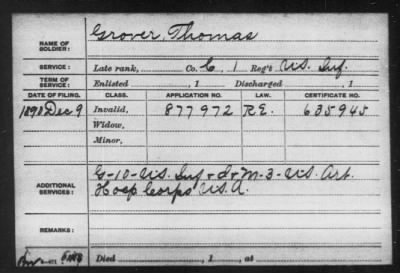 NAME OF SOLDIER: Grover, Thomas
SERVICE: Late rank, Co. G, 1 Reg't U.S. Inf.
TERM OF SERVICE: Enlisted , 1 Discharged , 1
DATE OF FILING. CLASS. APPLICATION NO. LAW. CERTIFICATE NO.
1890 Dec 9 Invalid, 877972 R.E. 635945
Widow,
Minor,
ADDITIONAL SERVICES: G-10-U.S. Inf + d + M-3-U.S. Art.
Hosp Corps U.S.A.
REMARKS:
Died , 1 , at